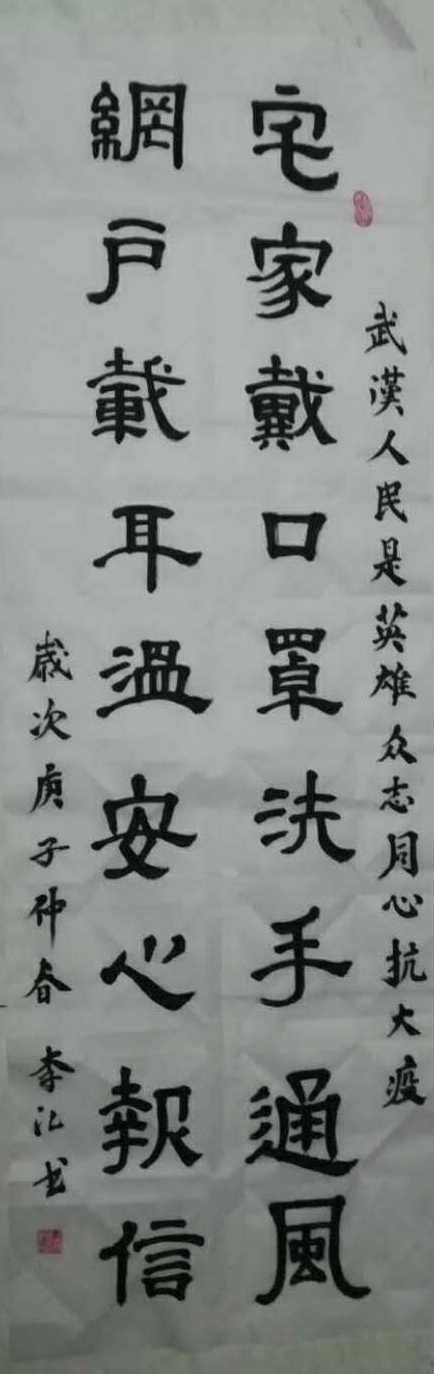 武漢人民是英雄众志同心抗大疫
宅家戴口罩洗手通風
網戶載耳溫安心報信
歲次庚子仲春 李汇书